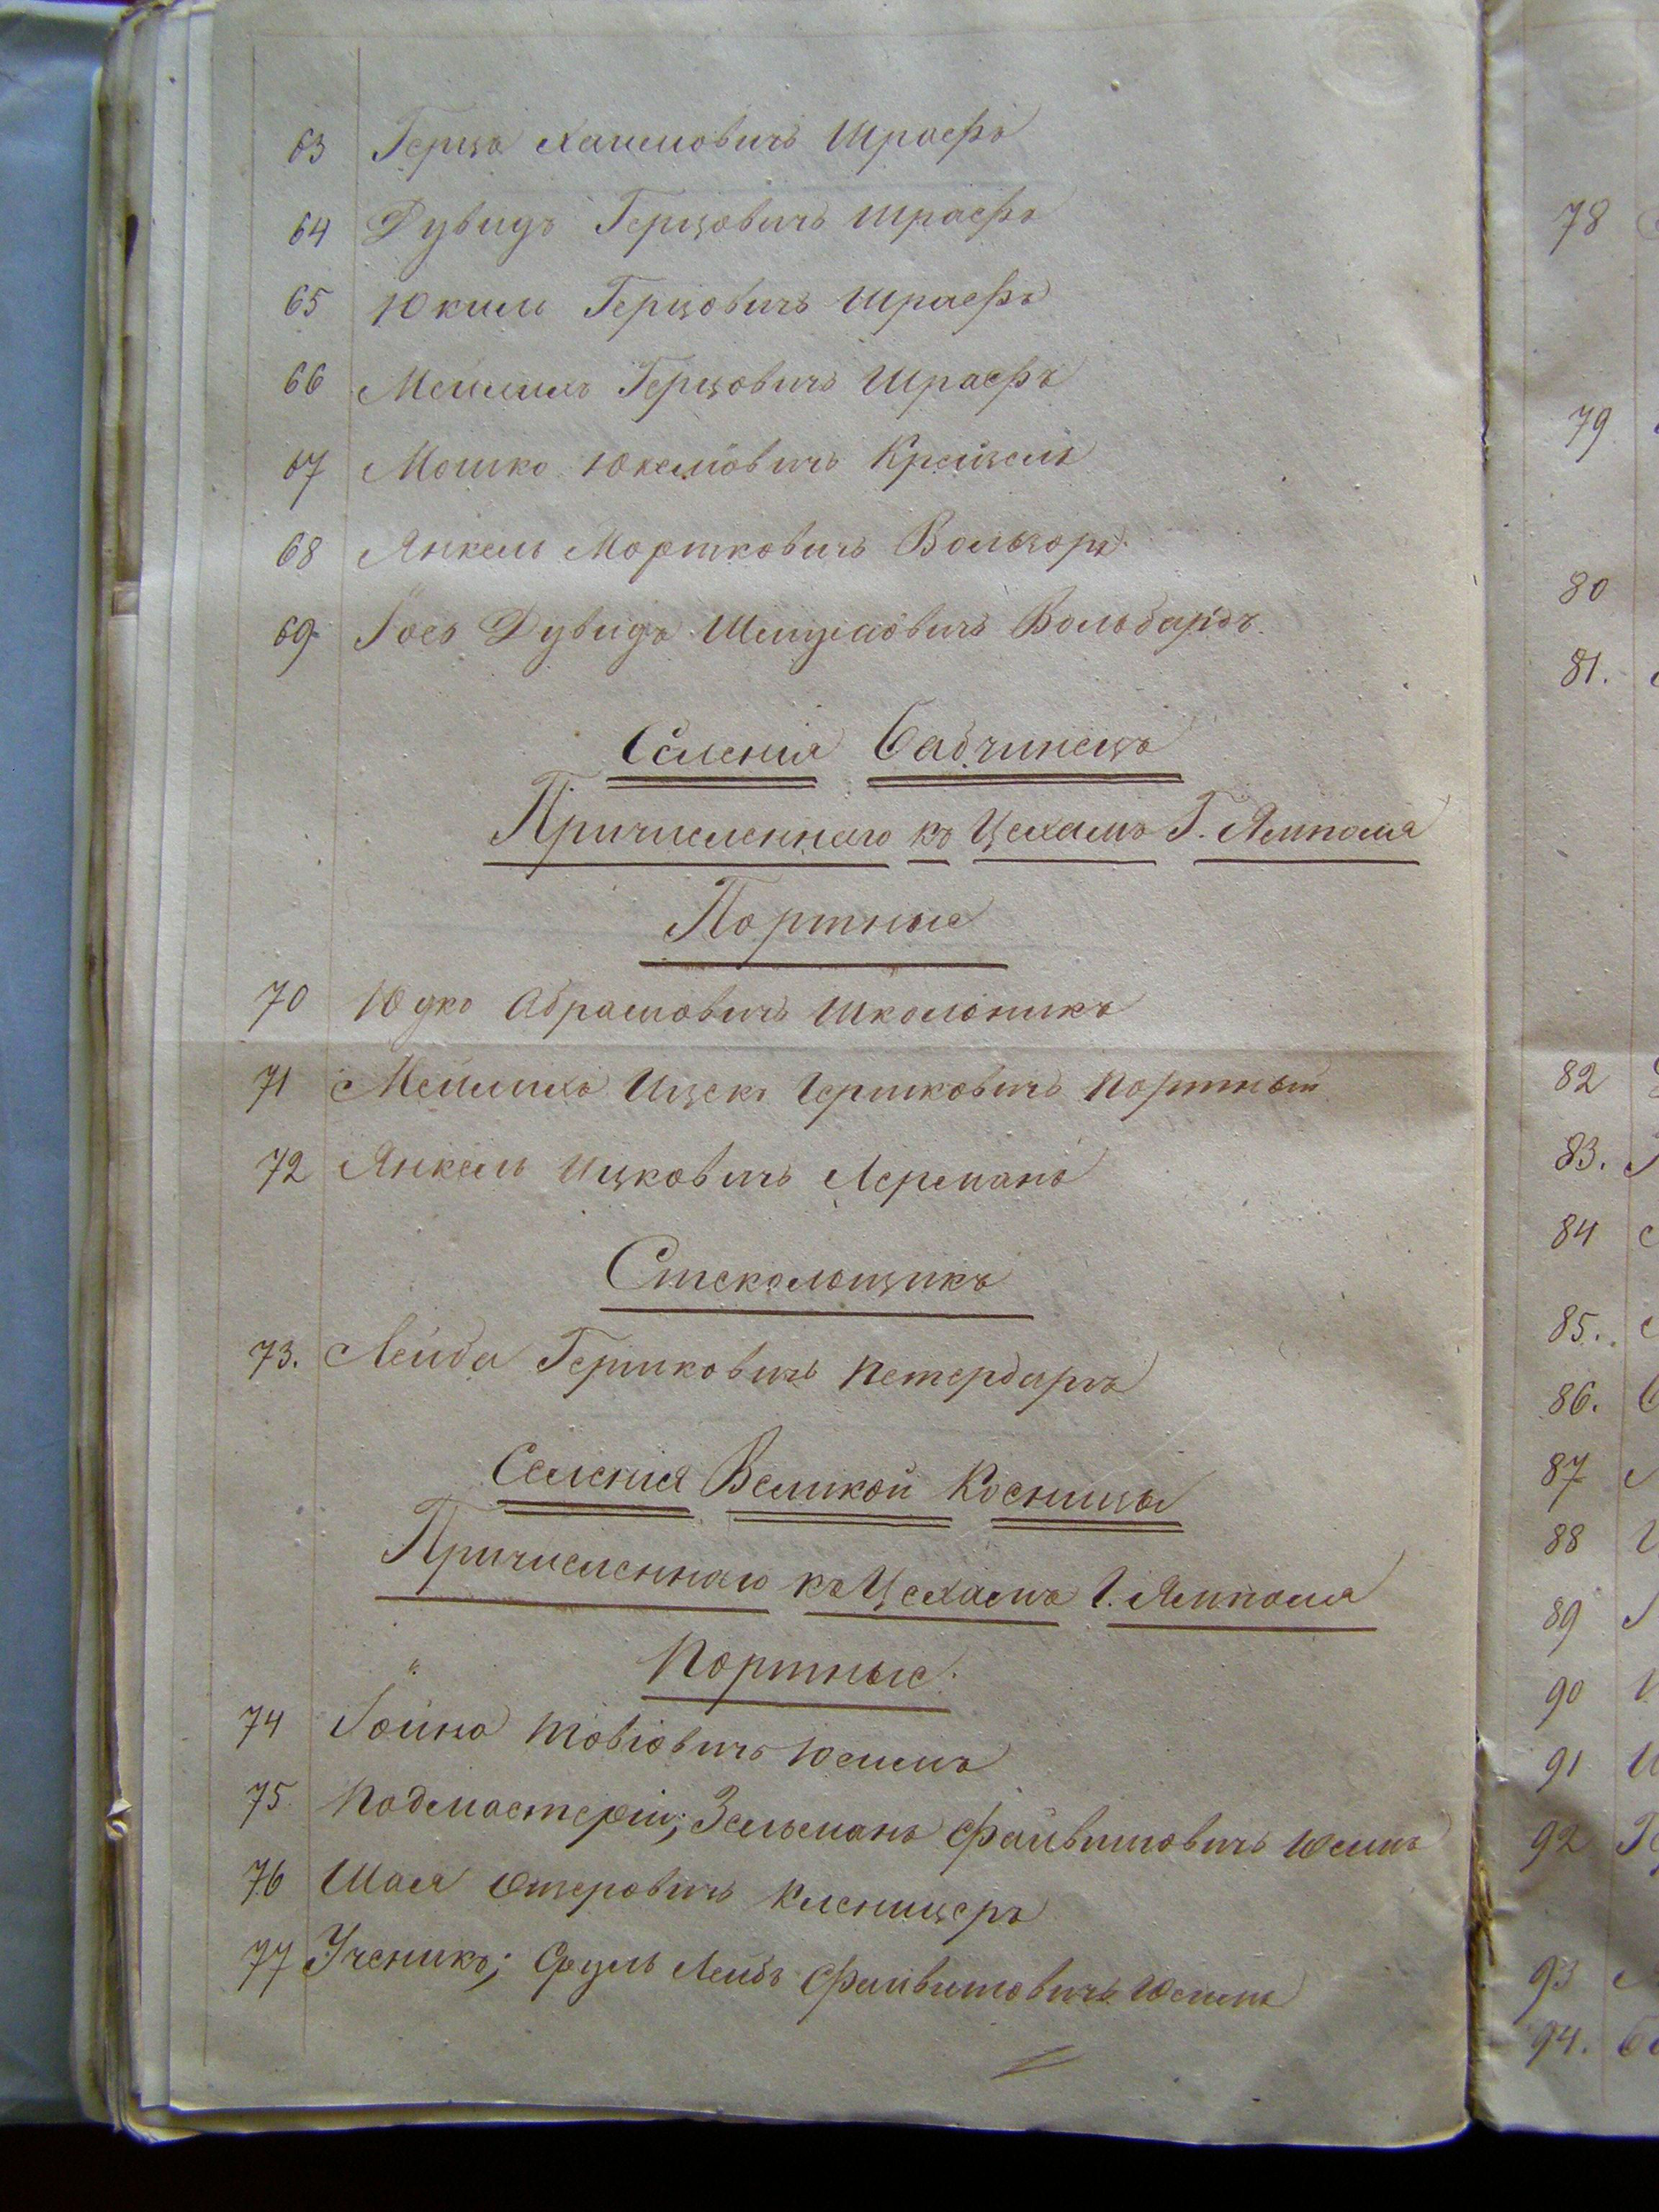 63 Герцъ Хаимовичъ Шраефъ
64 Дувидъ Герцовичъ Шраефъ
65 Юкиль Герцовичъ Шраефъ
66 Мейлихъ Герцовичъ Шраефъ
67 Мошко Юкелiовичъ Крейзель
68 Янкель Мортковичъ
69 Iось Дувидъ Шмулiовичъ
Селенiя Бабчинецъ
Причисленнаго къ Цехамъ Г. Ямполя
Портные
70 Юдко Абрамовичъ Школьникъ
71 Мейлихъ Ицекъ Гершковичъ Портный
72 Янкель Ицковичъ Лерманъ
Стекольщикъ
73. Лейба Гершковичъ Петербаргъ
Селенiя Великой Косницы
Причисленнаго къ Цехамъ Г. Ямполя
Портные.
74 Iойна Товiовичъ
75 Подмастерiи; Зельманъ Файвишовичъ
76 Шая Ошеровичъ Клейницеръ
77 Ученикъ; Сруль Лейбъ Файвишовичъ
78
79
80
81.
82
83.
84
85.
86.
87
88
89
90
91
92
93
94.